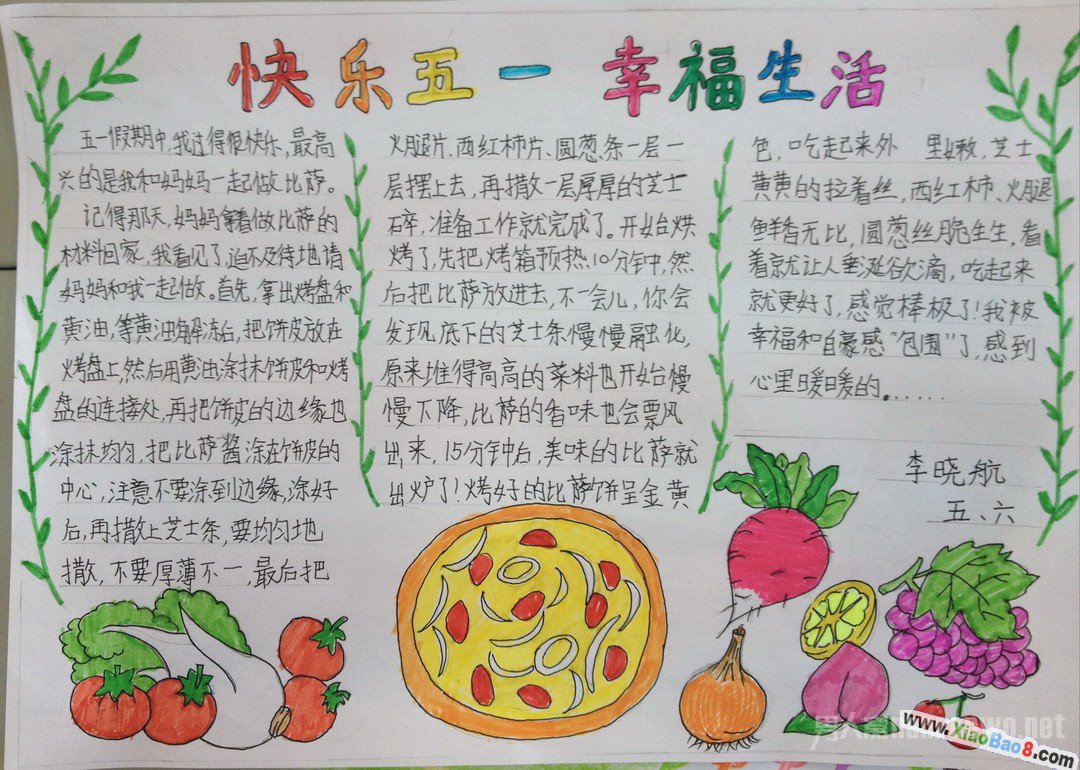 快乐五一 幸福生活
五一假期中,我过得很快乐,最高
兴的是我和妈妈一起做比萨。
记得那天,妈妈拿着做比萨的
材料回家,我看见了,迫不及待地请
妈妈和我一起做。首先,拿出烤盘和
黄油,等黄油解冻后,把饼皮放在
烤盘上,然后用黄油涂抹饼皮和烤
盘的连接处,再把饼皮的边缘也
涂抹均匀,把比萨酱涂在饼皮的
中心,注意不要涂到边缘,涂好
后,再撒上芝士条,要均匀地
撒,不要厚薄不一,最后把
火腿片、西红柿片、圆葱条一层一
层摆上去,再撒一层厚厚的芝士
碎,准备工作就完成了。开始烘
烤了,先把烤箱预热10分钟,然
后把比萨放进去,不一会儿,你会
发现底下的芝士条慢慢融化,
原来堆得高高的菜料也开始慢
慢下降,比萨的香味也会飘
出来,15分钟后,美味的比萨就
出炉了!烤好的比萨饼呈金黄
色,吃起来外 里嫩,芝士
黄黄的拉着丝,西红柿、火腿
鲜香无比,圆葱丝脆生生,看
着就让人垂涎欲滴,吃起来
就更好了,感觉棒极了!我被
幸福和自豪感“包围”了,感到
心里暖暖的。......
李晓航
五、六
www.XiaoBao8.com